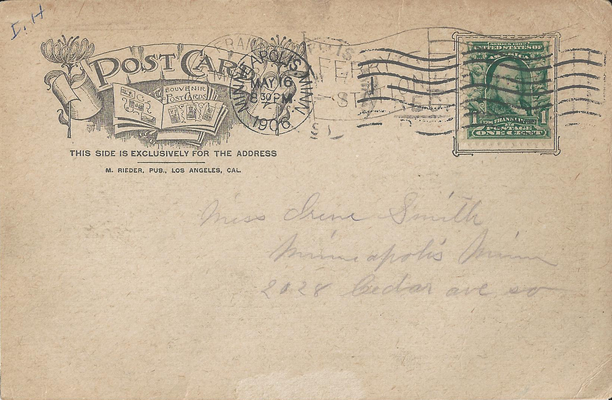 I. H
POST CARD
SOUVENIR
POST CARDS
MINNEAPOLIS, MINN.
MAY 16
8 30 PM
1906
UNITED STATES OF
AMERICA
1 FRANKLIN 1
POSTAGE
ONE CENT
THIS SIDE IS EXCLUSIVELY FOR THE ADDRESS
M. RIEDER, PUB., LOS ANGELES, CAL.
Miss Irene Smith
Minneapolis Minn
2028 Cedar ave so